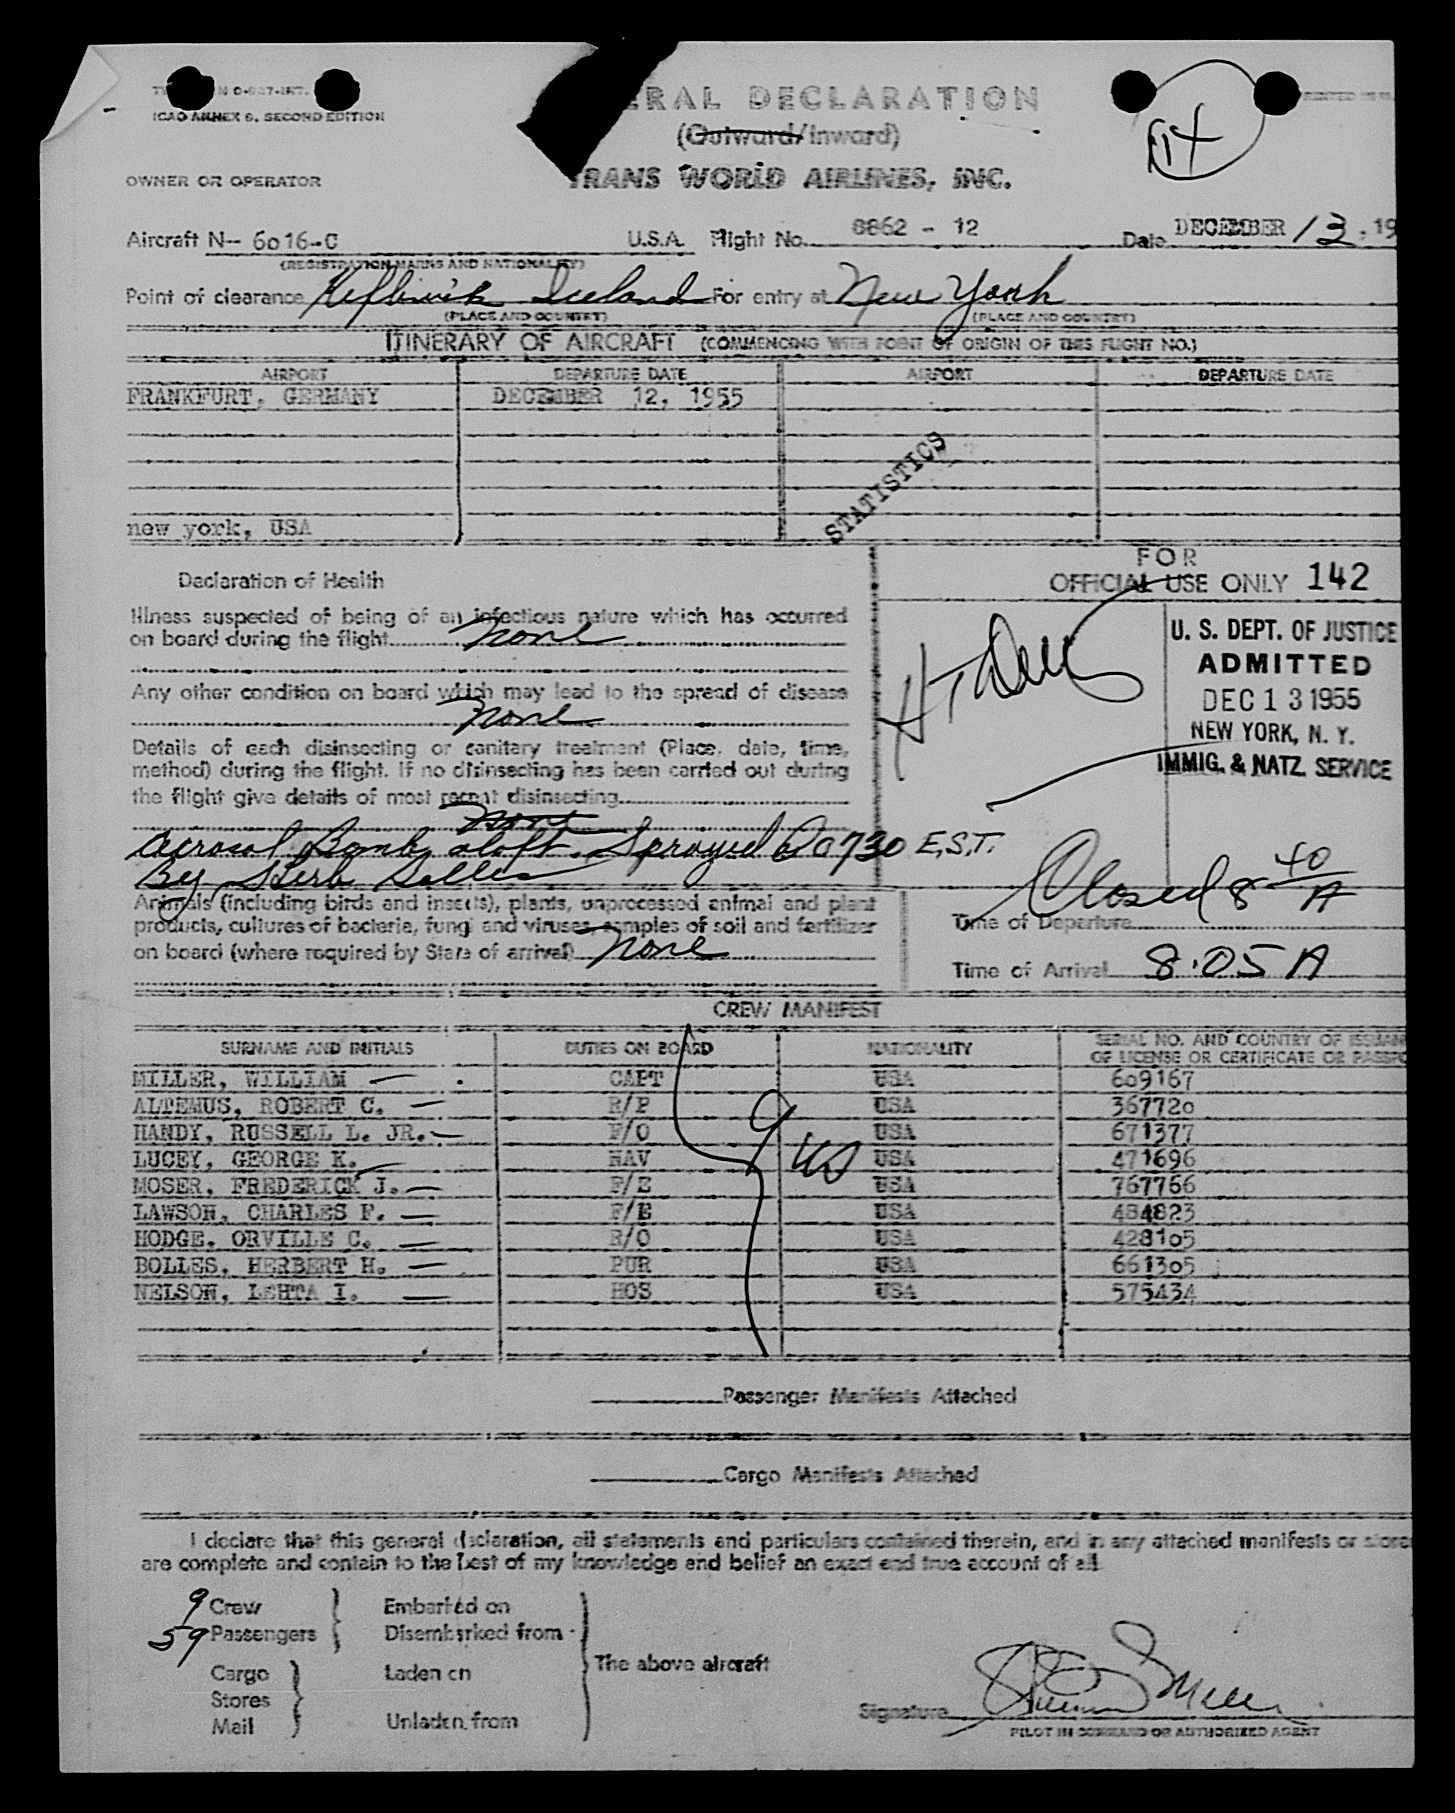 ICAO ANNEX 9, SECOND EDITION
ERAL DECLARATION
(Outward/Inward)
OWNER OR OPERATOR TRANS WORLD AIRLINES, INC.
Aircraft N-- 6016-C U.S.A. Flight No. 8862 - 12 Date DECEMBER 13, 19
(REGISTRATION MARKS AND NATIONALITY)
Point of clearance Keflavik Iceland For entry at New York
(PLACE AND COUNTRY) (PLACE AND COUNTRY)
ITINERARY OF AIRCRAFT (COMMENCING WITH POINT OF ORIGIN OF THIS FLIGHT NO.)
AIRPORT DEPARTURE DATE AIRPORT DEPARTURE DATE
FRANKFURT, GERMANY DECEMBER 12, 1955
STATISTICS
new york, USA
FOR
OFFICIAL USE ONLY 142
U. S. DEPT. OF JUSTICE
ADMITTED
DEC 13 1955
NEW YORK, N. Y.
IMMIG. & NATZ. SERVICE
Declaration of Health
Illness suspected of being of an infectious nature which has occurred
on board during the flight none
Any other condition on board which may lead to the spread of disease
none
Details of each disinsecting or sanitary treatment (Place, date, time,
method) during the flight. If no disinsecting has been carried out during
the flight give details of most recent disinsecting
none
Aerosol Bomb aloft. Sprayed @ 0730 E.S.T.
By Herb Bolles
Animals (including birds and insects), plants, unprocessed animal and plant
products, cultures of bacteria, fungi and viruses, samples of soil and fertilizer
on board (where required by State of arrival) none
Closed 8 40/A
Time of Departure
Time of Arrival 8:05 A
CREW MANIFEST
SURNAME AND INITIALS DUTIES ON BOARD NATIONALITY SERIAL NO. AND COUNTRY OF ISSUAN
OF LICENSE OR CERTIFICATE OR PASSPO
MILLER, WILLIAM CAPT USA 609167
ALTEMUS, ROBERT C. R/P USA 367720
HANDY, RUSSELL L. JR. F/O USA 671377
LUCEY, GEORGE K. NAV USA 471696
MOSER, FREDERICK J. F/E USA 767766
LAWSON, CHARLES F. F/E USA 484823
HODGE, ORVILLE C. R/O USA 428105
BOLLES, HERBERT H. PUR USA 661305
NELSON, LEHTA I. HOS USA 575434
9 US
Passenger Manifests Attached
Cargo Manifests Attached
I declare that this general declaration, all statements and particulars contained therein, and in any attached manifests or stores
are complete and contain to the best of my knowledge and belief an exact and true account of all
9 Crew Embarked on
59 Passengers Disembarked from
The above aircraft
Cargo Laden on
Stores
Mail Unladen from
Signature
PILOT IN COMMAND OR AUTHORIZED AGENT